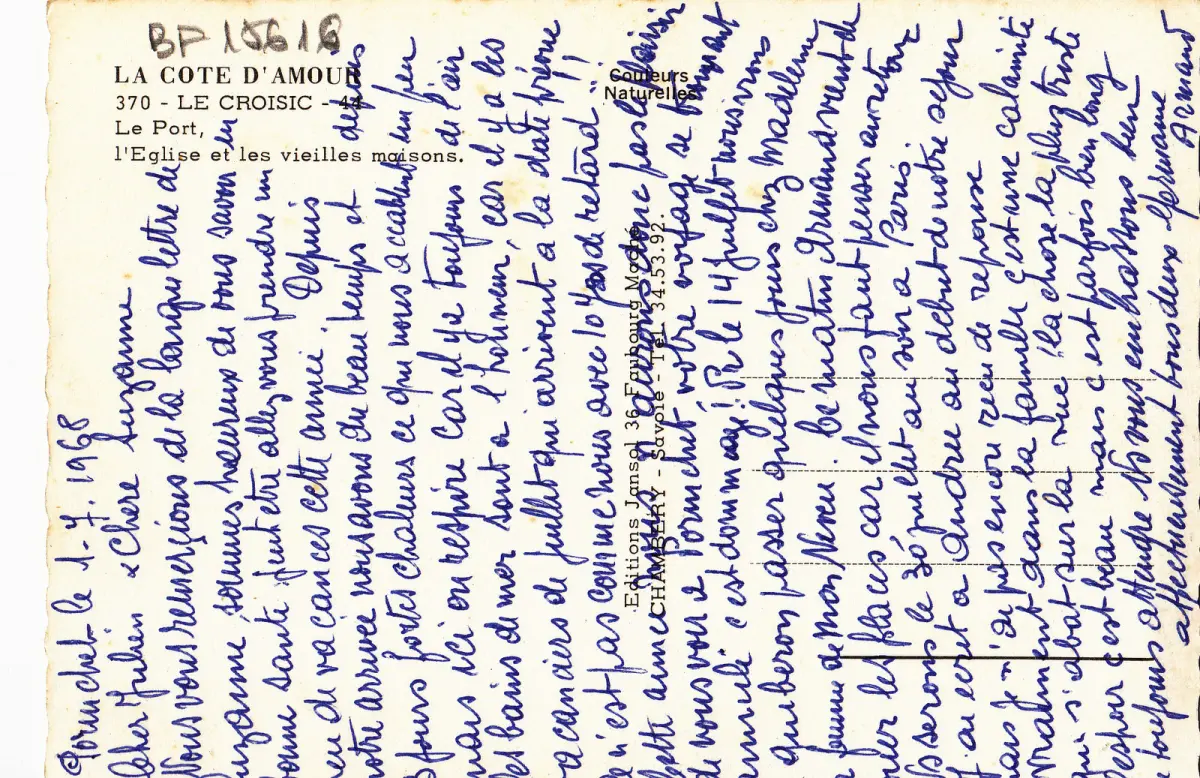 BP 15618
LA COTE D'AMOUR
370 - LE CROISIC - 44
Le Port,
l'Eglise et les vieilles maisons.
Couleurs
Naturelles
Editions Jansol 36, Faubourg Maché
CHAMBÉRY - Savoie - Tél. 34.53.92.
Pornichet le 1-7-1968
Cher Julien & Chere Suzanne
Nous vous remercions de la longue lettre de
Suzanne, sommes heureux de vous savoir en
bonne santé, peut etre allez vous prendre un
peu de vacances cette année. Depuis
notre arrivée nous avons du beau temps et depuis
jours fortes chaleurs ce qui nous accablent un peu
mais ici on respire car il y a toujours de l'air
les bains de mer sont a l'honneur, car il y a les
vacanciers de juillet qui arrivent a la date prévue
ce n'est pas comme nous avec 10 jours de retard !!
Cette année donc pas le plaisir
de vous voir a Pornichet votre voyage se trouvant
annulé c'est dommage ! Ps le 14 juillet nous irons
a quiberon passer quelques jours chez Madeleine
femme de mon Neveu. Ce matin Armand vient de
les places car il nous faut penser au retour
Ns serons le 30 juillet au soir a Paris.
J'ai ecrit a Andrée au debut de notre sejour
mais je n'ai pas encore reçu de reponse
Vraiment dans la famille c'est une calamité
qui s'abat sur la vue "la chose la plus triste
espoir c'est beau mais c'est parfois bien long
toujours attendre Ns vous embrassons bien
affectueusement tous deux Germaine
Armand